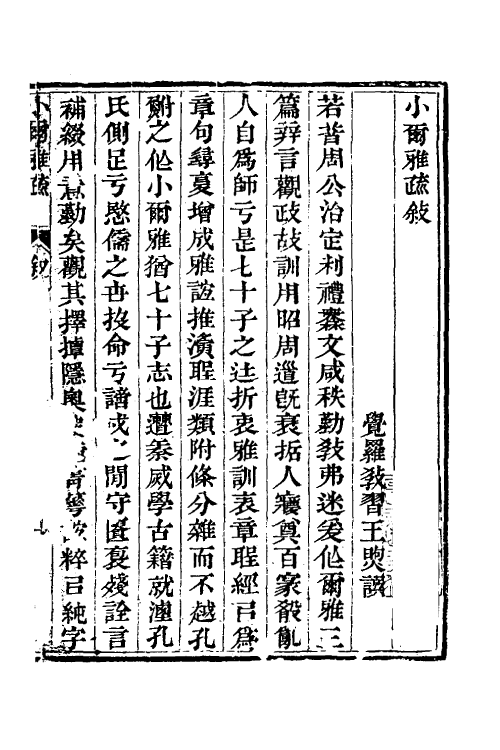 小爾雅疏敍
覺羅教習王煦譔
若昔周公治定制禮釐文咸秩勤敎弗迷爰作爾雅三
篇辨言觀政故訓用昭周道旣衰哲人寢奠百家殽亂
人自爲師于是七十子之徒折衷雅訓衷章聖經㠯爲
章句尋夏增成雅誼推演聖涯類附條分雜而不越孔
鮒之作小爾雅猶七十子志也遭秦威學古籍就湮孔
氏側足亏愍儒之世投命亏譜戍之閒守匱襃殘詮言
補綴用意勤矣觀其擇撢隱奧 粹㠯純字
小爾雅疏 敍